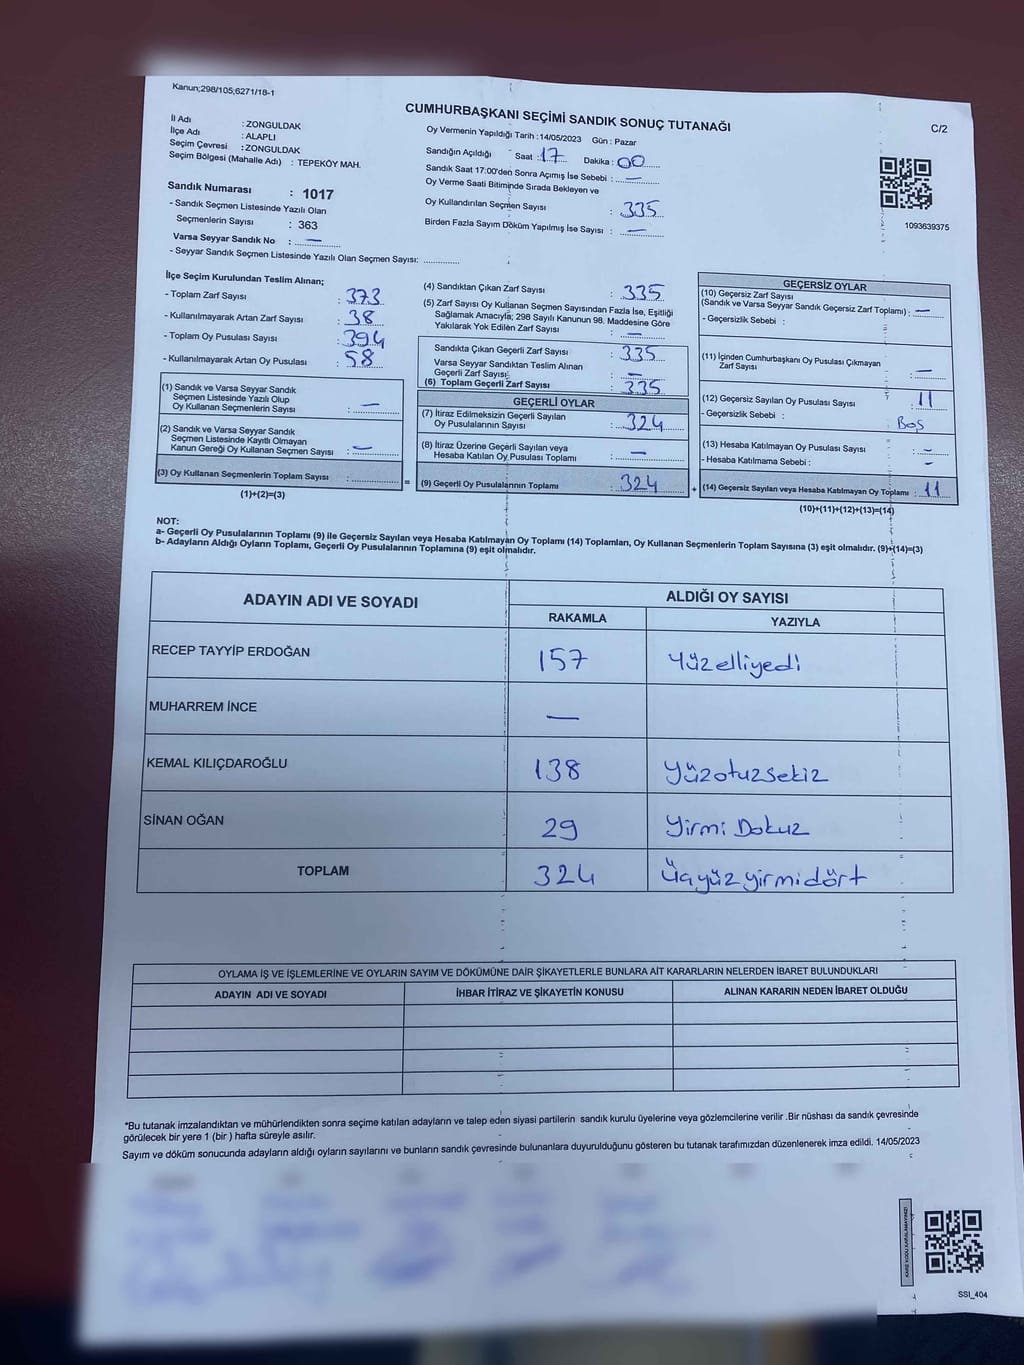 Kanun;298/105;6271/18-1
CUMHURBAŞKANI SEÇİMİ SANDIK SONUÇ TUTANAĞI
C/2
İl Adı : ZONGULDAK
İlçe Adı : ALAPLI
Seçim Çevresi : ZONGULDAK
Seçim Bölgesi (Mahalle Adı) : TEPEKÖY MAH.
Sandık Numarası : 1017
- Sandık Seçmen Listesinde Yazılı Olan
Seçmenlerin Sayısı : 363
Varsa Seyyar Sandık No : —
- Seyyar Sandık Seçmen Listesinde Yazılı Olan Seçmen Sayısı: ............
Oy Vermenin Yapıldığı Tarih : 14/05/2023 Gün : Pazar
Sandığın Açıldığı Saat : 17 Dakika : 00
Sandık Saat 17:00'den Sonra Açımış İse Sebebi : —
Oy Verme Saati Bitiminde Sırada Bekleyen ve
Oy Kullandırılan Seçmen Sayısı : 335
Birden Fazla Sayım Döküm Yapılmış İse Sayısı : —
1093639375
İlçe Seçim Kurulundan Teslim Alınan;
- Toplam Zarf Sayısı : 373
- Kullanılmayarak Artan Zarf Sayısı : 38
- Toplam Oy Pusulası Sayısı : 394
- Kullanılmayarak Artan Oy Pusulası : 58
(1) Sandık ve Varsa Seyyar Sandık
Seçmen Listesinde Yazılı Olup
Oy Kullanan Seçmenlerin Sayısı : —
(2) Sandık ve Varsa Seyyar Sandık
Seçmen Listesinde Kayıtlı Olmayan
Kanun Gereği Oy Kullanan Seçmen Sayısı : —
(3) Oy Kullanan Seçmenlerin Toplam Sayısı : ............ =
(1)+(2)=(3)
(4) Sandıktan Çıkan Zarf Sayısı : 335
(5) Zarf Sayısı Oy Kullanan Seçmen Sayısından Fazla İse, Eşitliği
Sağlamak Amacıyla; 298 Sayılı Kanunun 98. Maddesine Göre
Yakılarak Yok Edilen Zarf Sayısı : —
Sandıkta Çıkan Geçerli Zarf Sayısı : 335
Varsa Seyyar Sandıktan Teslim Alınan
Geçerli Zarf Sayısı : —
(6) Toplam Geçerli Zarf Sayısı : 335
GEÇERLİ OYLAR
(7) İtiraz Edilmeksizin Geçerli Sayılan
Oy Pusulalarının Sayısı : 324
(8) İtiraz Üzerine Geçerli Sayılan veya
Hesaba Katılan Oy Pusulası Toplamı : —
(9) Geçerli Oy Pusulalarının Toplamı : 324 +
GEÇERSİZ OYLAR
(10) Geçersiz Zarf Sayısı
(Sandık ve Varsa Seyyar Sandık Geçersiz Zarf Toplamı) : —
- Geçersizlik Sebebi :
(11) İçinden Cumhurbaşkanı Oy Pusulası Çıkmayan
Zarf Sayısı : —
(12) Geçersiz Sayılan Oy Pusulası Sayısı : 11
- Geçersizlik Sebebi : Boş
(13) Hesaba Katılmayan Oy Pusulası Sayısı : —
- Hesaba Katılmama Sebebi : —
(14) Geçersiz Sayılan veya Hesaba Katılmayan Oy Toplamı : 11
(10)+(11)+(12)+(13)=(14)
NOT:
a- Geçerli Oy Pusulalarının Toplamı (9) ile Geçersiz Sayılan veya Hesaba Katılmayan Oy Toplamı (14) Toplamları, Oy Kullanan Seçmenlerin Toplam Sayısına (3) eşit olmalıdır. (9)+(14)=(3)
b- Adayların Aldığı Oyların Toplamı, Geçerli Oy Pusulalarının Toplamına (9) eşit olmalıdır.
ADAYIN ADI VE SOYADI ALDIĞI OY SAYISI
RAKAMLA YAZIYLA
RECEP TAYYİP ERDOĞAN 157 Yüzelliyedi
MUHARREM İNCE —
KEMAL KILIÇDAROĞLU 138 Yüzotuzsekiz
SİNAN OĞAN 29 Yirmi Dokuz
TOPLAM 324 Üçyüzyirmidört
OYLAMA İŞ VE İŞLEMLERİNE VE OYLARIN SAYIM VE DÖKÜMÜNE DAİR ŞİKAYETLERLE BUNLARA AİT KARARLARIN NELERDEN İBARET BULUNDUKLARI
ADAYIN ADI VE SOYADI İHBAR İTİRAZ VE ŞİKAYETİN KONUSU ALINAN KARARIN NEDEN İBARET OLDUĞU
*Bu tutanak imzalandıktan ve mühürlendikten sonra seçime katılan adayların ve talep eden siyasi partilerin sandık kurulu üyelerine veya gözlemcilerine verilir .Bir nüshası da sandık çevresinde
görülecek bir yere 1 (bir ) hafta süreyle asılır.
Sayım ve döküm sonucunda adayların aldığı oyların sayılarını ve bunların sandık çevresinde bulunanlara duyurulduğunu gösteren bu tutanak tarafımızdan düzenlenerek imza edildi. 14/05/2023
KARE KODU KARALAMAYINIZ!
SSI_404